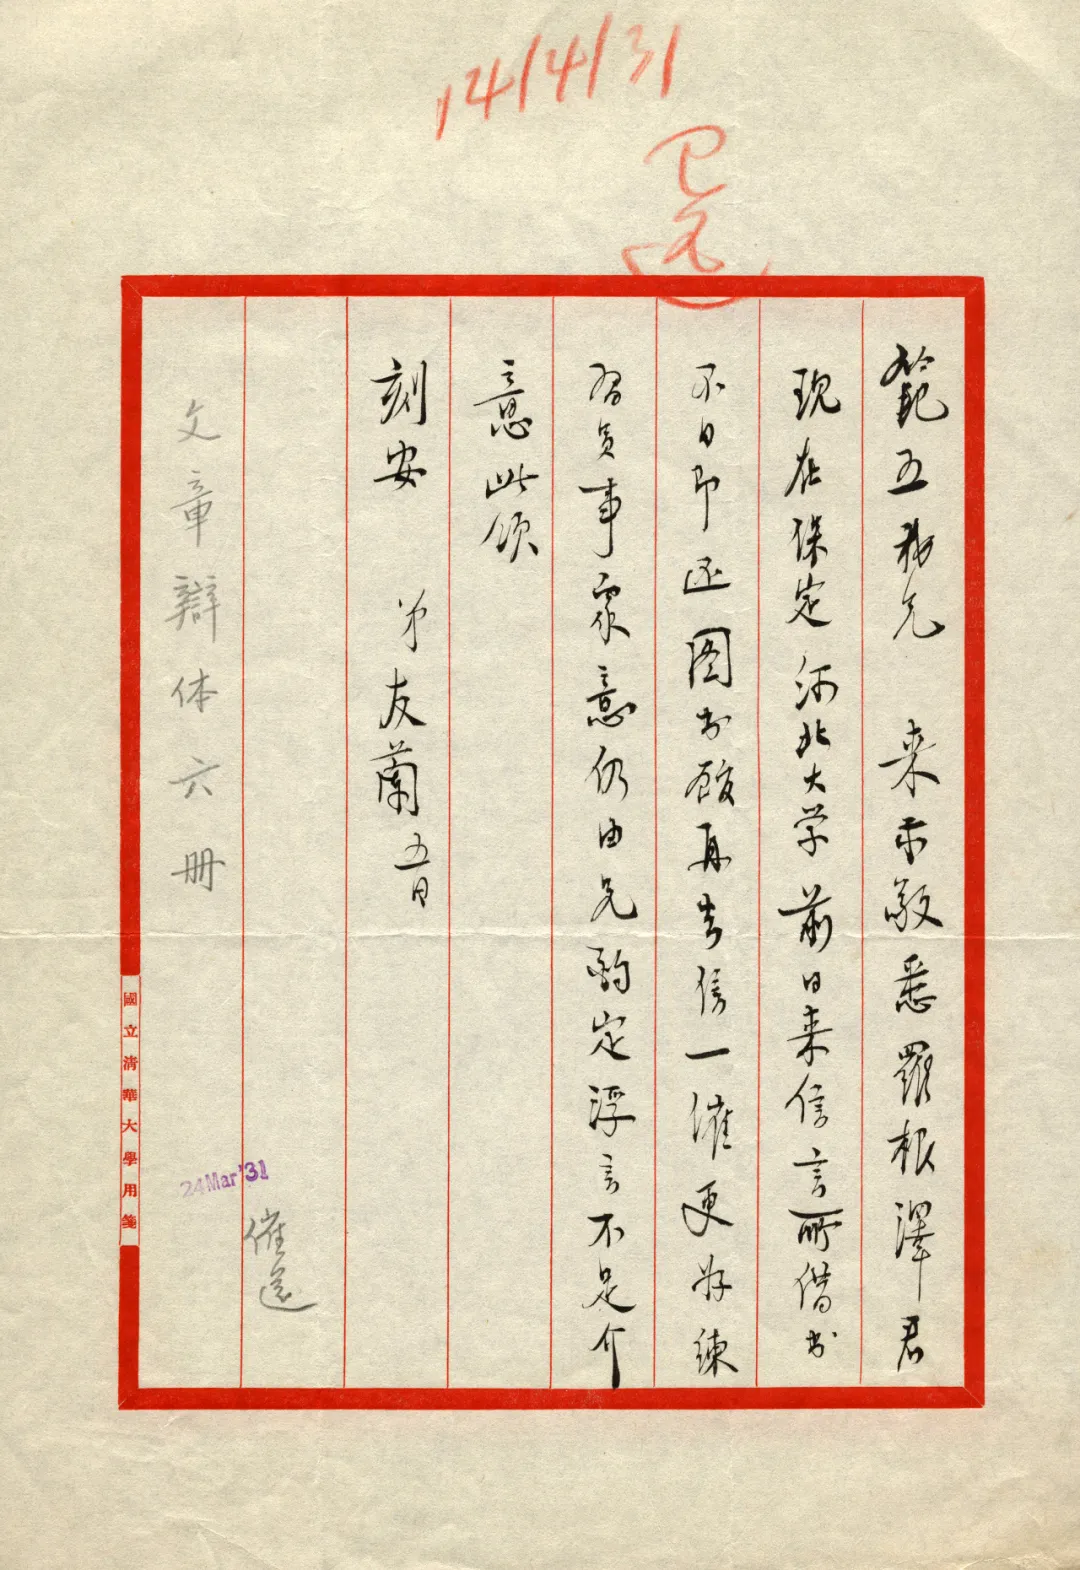 14/4/31
已还
範五我兄 来示敬悉羅根澤君
现在保定河北大学前日来信言所借书
不日即还图书馆再去信一催更好練
習員事意仍由兄酌定浮言不足介
意此颂
刻安 弟友蘭 五日
催還
24 Mar '31
文章辯体六册
國立清華大學用箋